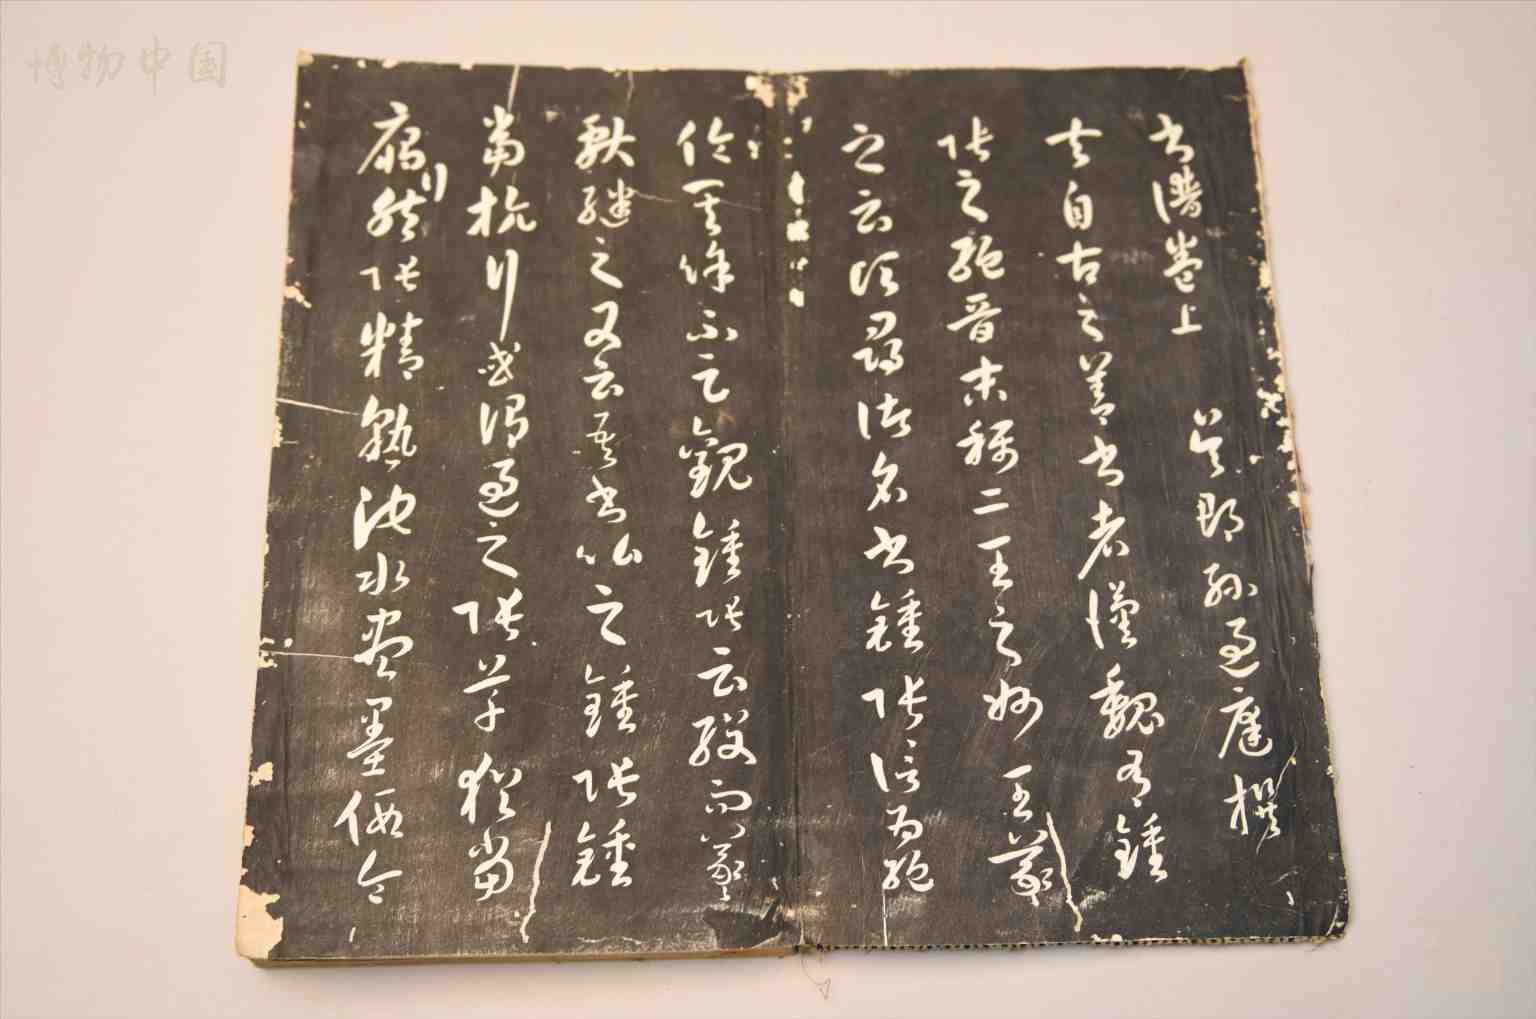 博物中国
書譜卷上 吳郡孫過庭撰
夫自古之善書者漢魏有鍾
張之絕晉末稱二王之妙王羲
之云頃尋諸名書鍾張信為絕
倫其餘不足觀鍾張云沒而羲
獻繼之又云吾書比之鍾張鍾
當抗行或謂過之張草猶當
鴈行然張精熟池水盡墨假令